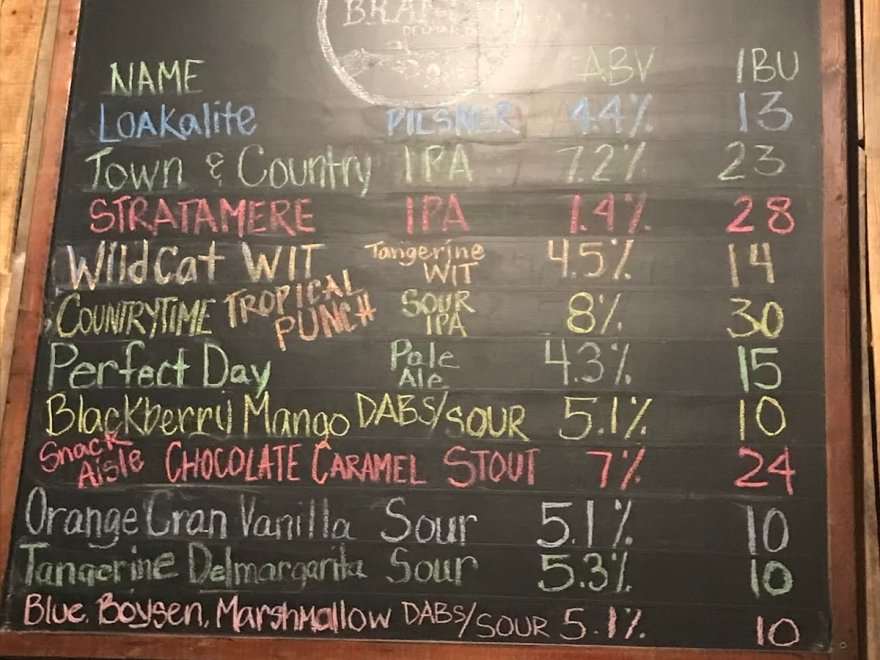 DELMAR, DE
NAME ABV IBU
LOAKalite PILSNER 4.4% 13
Town & Country IPA 7.2% 23
STRATAMERE IPA 7.4% 28
WildCat WIT Tangerine WIT 4.5% 14
COUNTRYTIME TROPICAL PUNCH SOUR IPA 8% 30
Perfect Day Pale Ale 4.3% 15
Blackberry Mango DABS/SOUR 5.1% 10
Snack Aisle CHOCOLATE CARAMEL STOUT 7% 24
Orange Cran Vanilla Sour 5.1% 10
Tangerine Delmargarita Sour 5.3% 10
Blue, Boysen, Marshmallow DABS/SOUR 5.1% 10